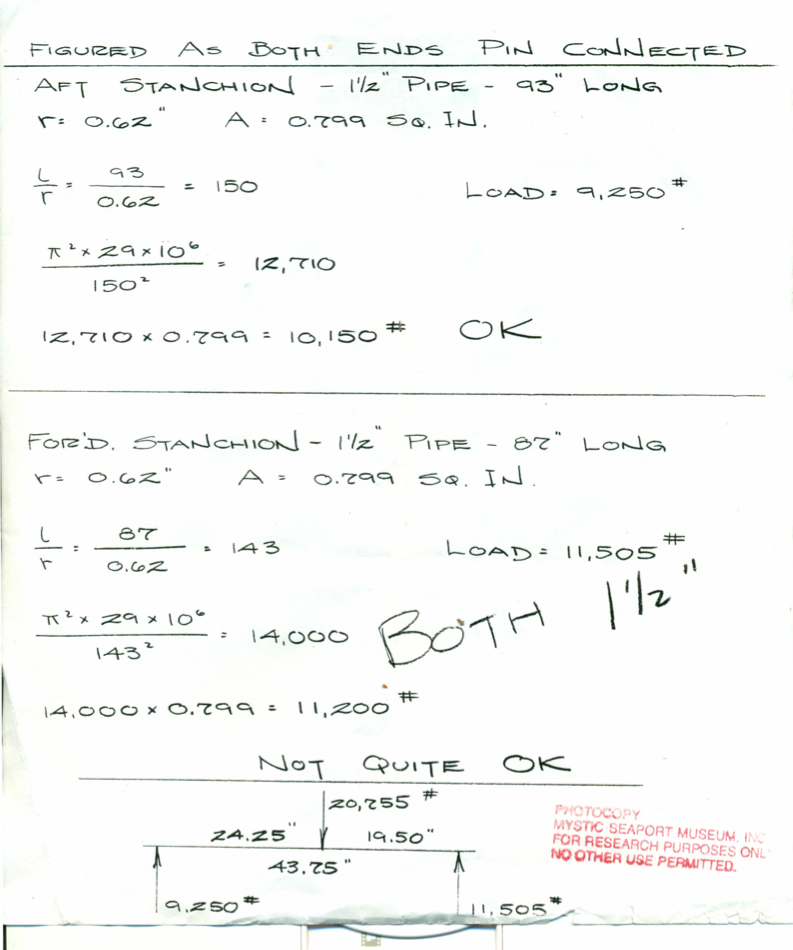 FIGURED AS BOTH ENDS PIN CONNECTED
AFT STANCHION - 1 1/2" PIPE - 93" LONG
r = 0.62" A = 0.799 SQ. IN.
L/r = 93/0.62 = 150 LOAD = 9,250#
π² × 29 × 10⁶ / 150² = 12,710
12,710 × 0.799 = 10,150# OK
FOR'D. STANCHION - 1 1/2" PIPE - 87" LONG
r = 0.62" A = 0.799 SQ. IN.
L/r = 87/0.62 = 143 LOAD = 11,505#
π² × 29 × 10⁶ / 143² = 14,000 BOTH 1 1/2"
14,000 × 0.799 = 11,200#
NOT QUITE OK
20,755#
24.25" 19.50"
43.75"
9,250# 11,505#
PHOTOCOPY
MYSTIC SEAPORT MUSEUM, INC
FOR RESEARCH PURPOSES ONL
NO OTHER USE PERMITTED.